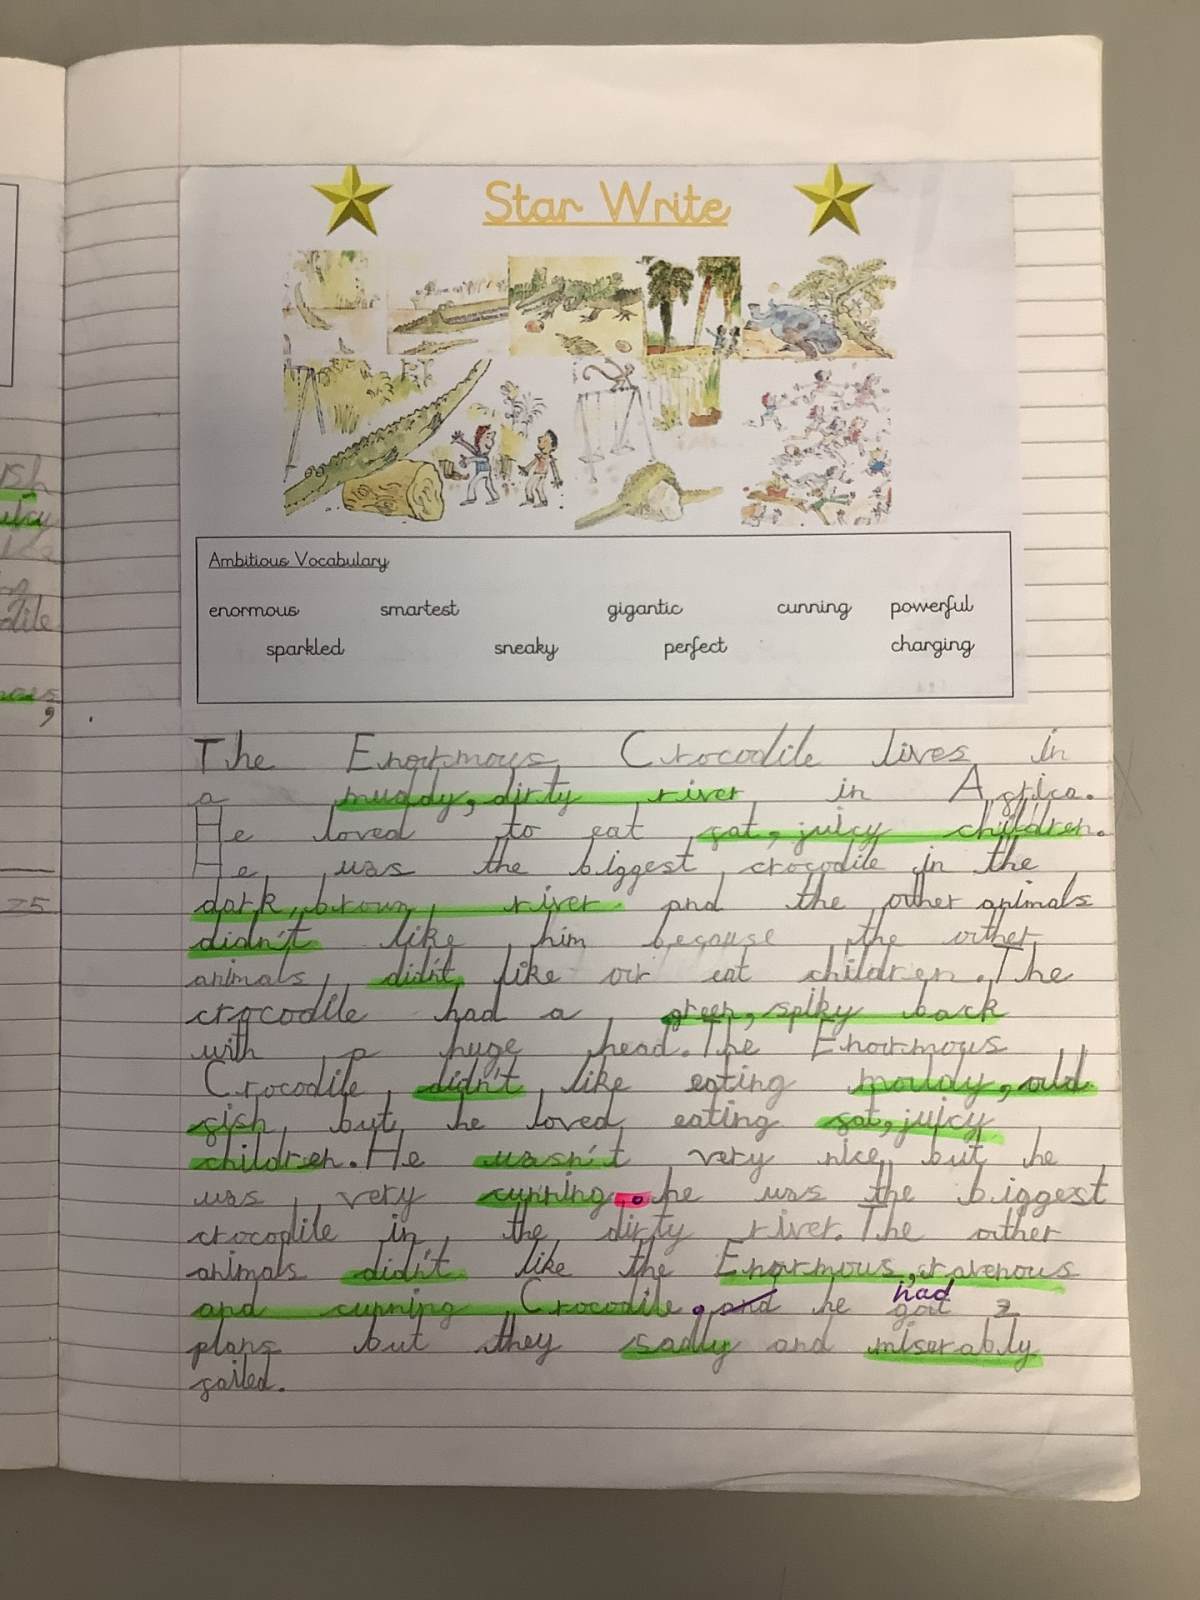 Star Write
Ambitious Vocabulary
enormous smartest gigantic cunning powerful
sparkled sneaky perfect charging
The Enormous Crocodile lives in
a muddy, dirty river in Africa.
He loved to eat fat, juicy children.
He was the biggest crocodile in the
dark, brown river and the other animals
didn't like him because the other
animals didn't like our eat children. The
crocodile had a green, spiky back
with a huge head. The Enormous
Crocodile didn't like eating mouldy, old
fish but he loved eating fat, juicy
children. He wasn't very nice but he
was very cunning. he was the biggest
crocodile in the dirty river. The other
animals didn't like the Enormous, ravenous
had
and cunning Crocodile. and he got 2
plans but they sadly and miserably
failed.
25